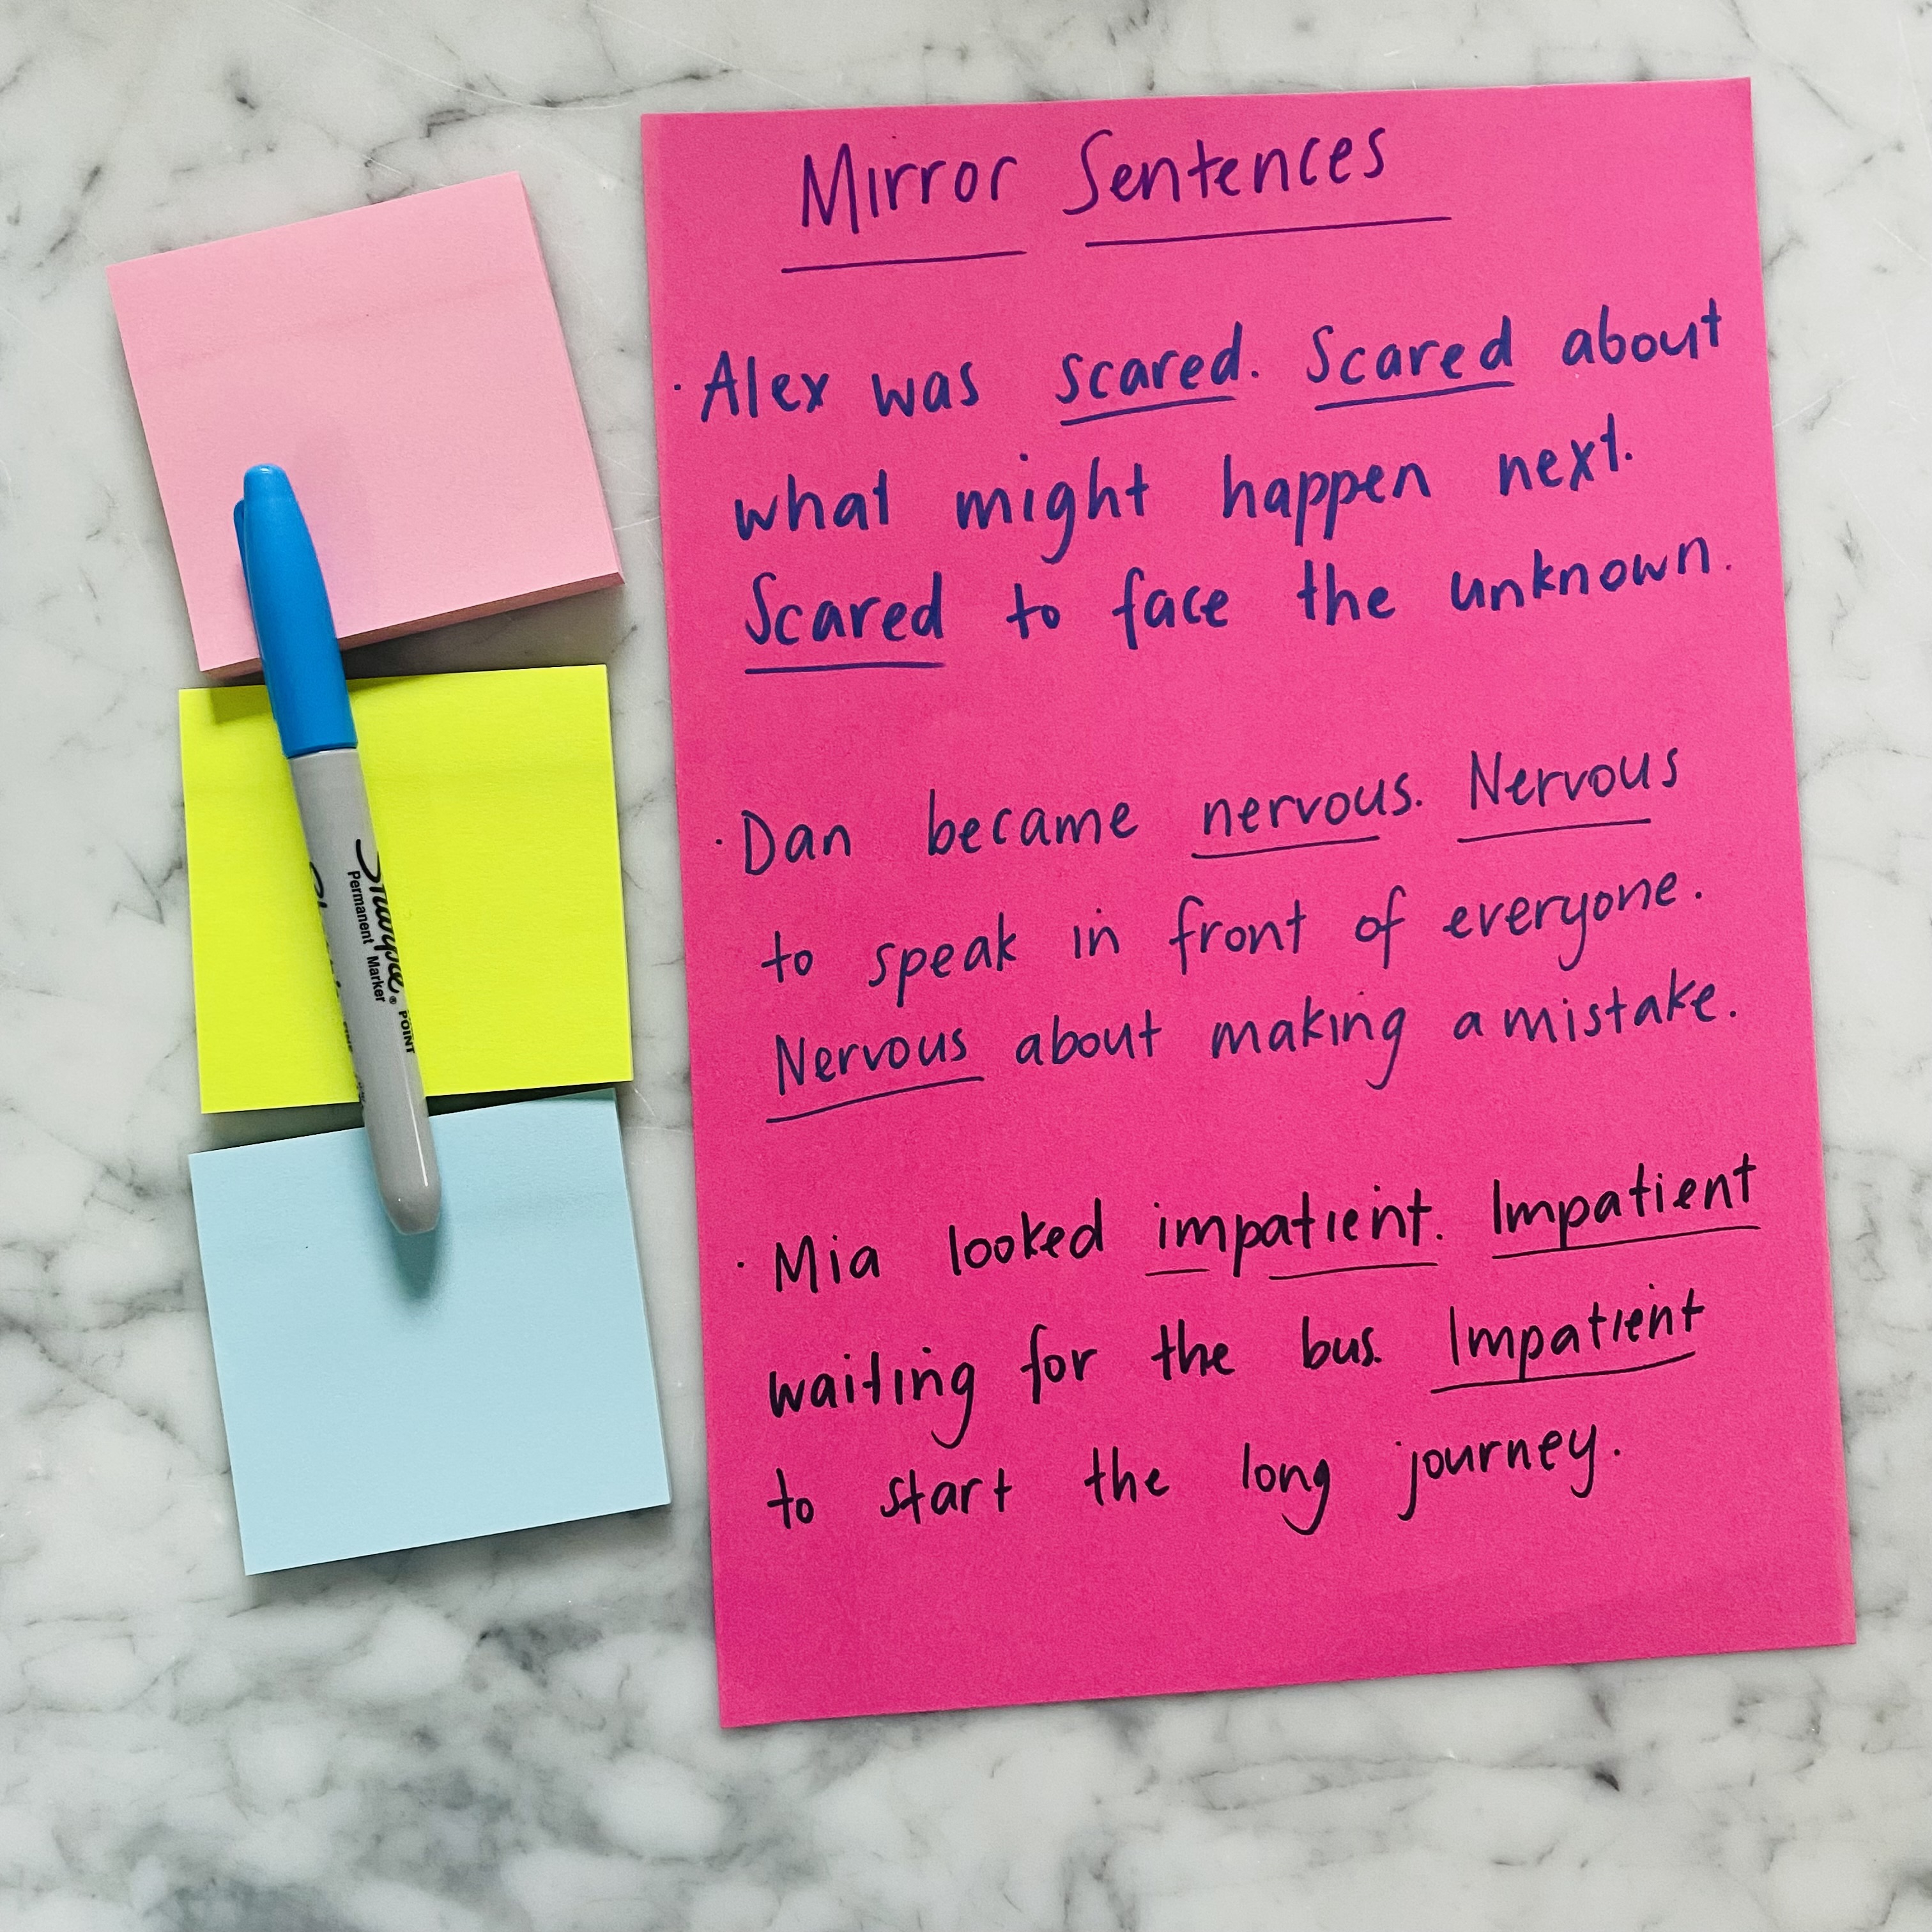 Mirror Sentences
· Alex was scared. Scared about
what might happen next.
Scared to face the unknown.
· Dan became nervous. Nervous
to speak in front of everyone.
Nervous about making a mistake.
· Mia looked impatient. Impatient
waiting for the bus. Impatient
to start the long journey.
Sharpie®
Permanent Marker
POINT